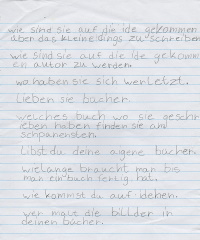 wie sind sie auf die ide gekommen
über das kleine dings zu schreiben
wie sind sie auf die ide gekomm
ein autor zu werden.
wo haben sie sich werletzt.
Lieben sie bücher
welches buch wo sie geschri
ieben haben finden sie aml
schpanensten.
Libst du deine eigene bücher.
wielange braucht man bis
man ein buch fertig hat.
wie kommst du auf idehen.
wer malt die billder in
deinen bücher.